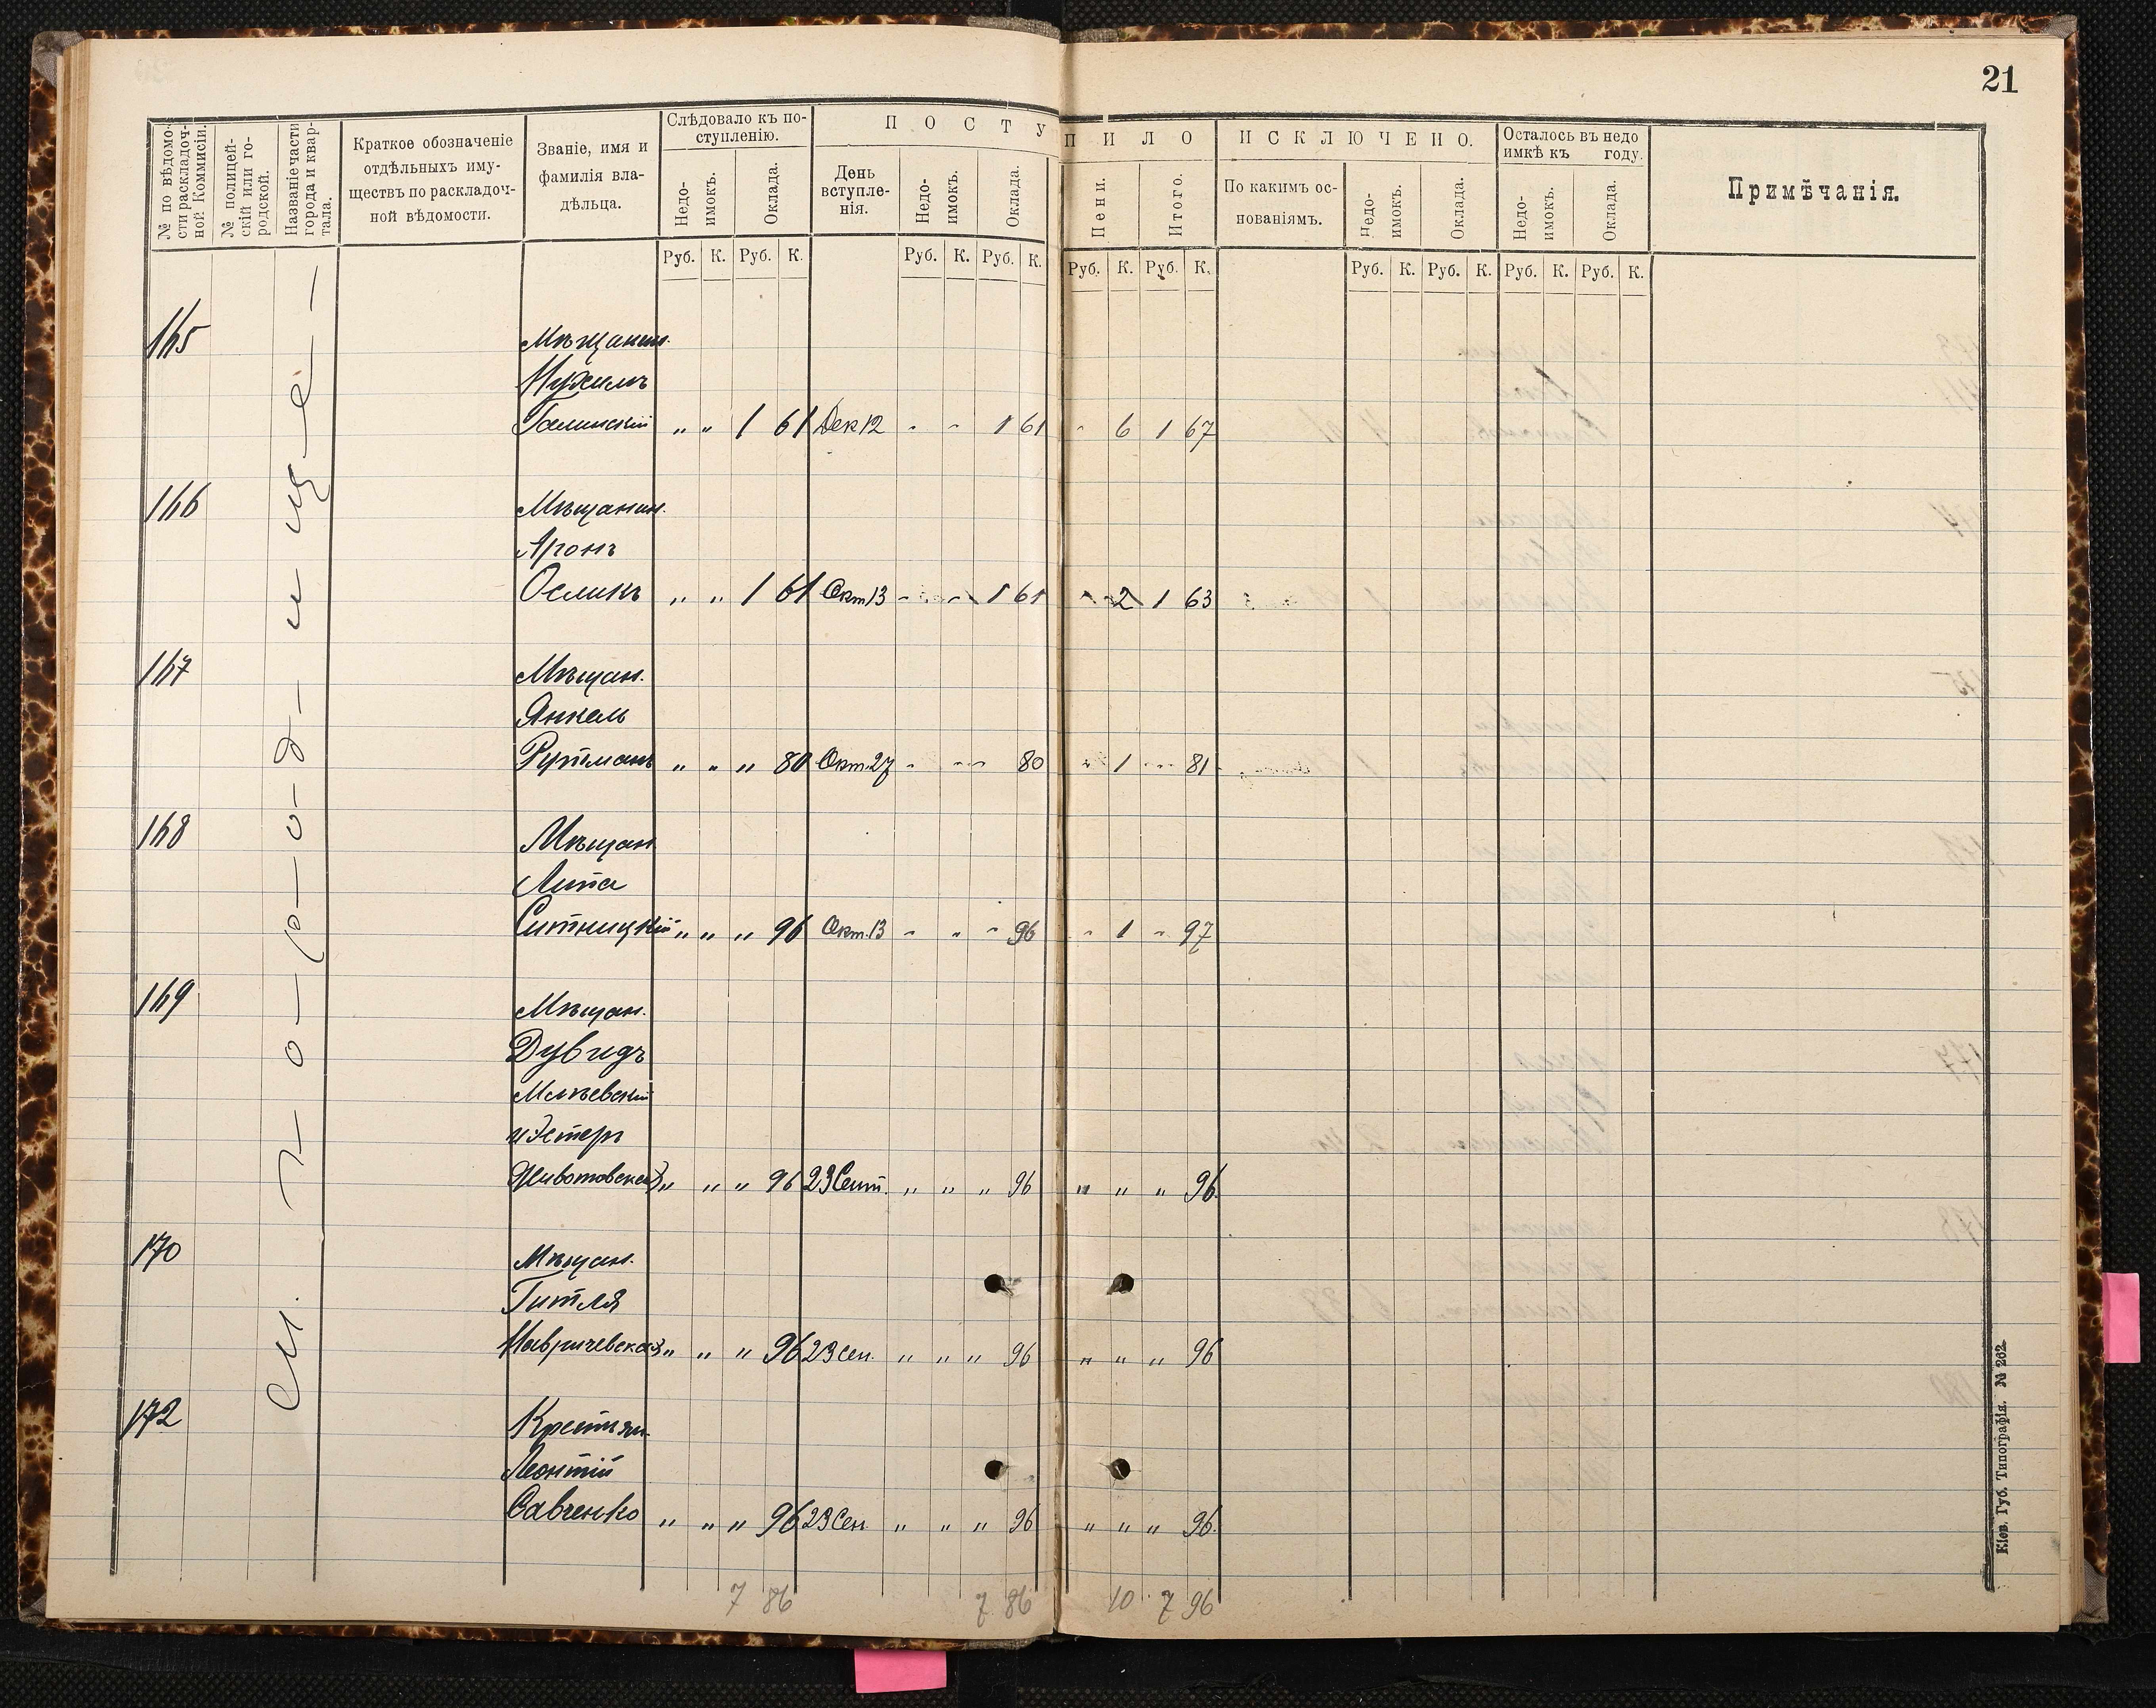 21
№ по вѣдомо-
сти раскладоч-
ной Коммисіи.
№ полицей-
скій или го-
родской.
Названіе части
города и квар-
тала.
Краткое обозначеніе
отдѣльныхъ иму-
ществъ по раскладоч-
ной вѣдомости.
Званіе, имя и
фамилія вла-
дѣльца.
Слѣдовало къ по-
ступленію.
Недо-
имокъ.
Оклада.
ПОСТУПИЛО
День
вступле-
нія.
Недо-
имокъ.
Оклада.
Пени.
Итого.
ИСКЛЮЧЕНО.
По какимъ ос-
нованіямъ.
Недо-
имокъ.
Оклада.
Осталось въ недо
имкѣ къ году.
Недо-
имокъ.
Оклада.
Примѣчанія.
Руб. К. Руб. К. Руб. К. Руб. К. Руб. К. Руб. К. Руб. К. Руб. К. Руб. К. Руб. К.
м. г-о-р-о-д-и щ-е-
165
Мѣщанин.
Нухимъ
Галинскій „ „ 1 61 Дек 12 - - 1 61 - 6 1 67
166
Мѣщанин.
Аронъ
Осликъ „ „ 1 61 Окт 13 - - 1 61 - 2 1 63
167
Мѣщан.
Янкель
Рутманъ „ „ „ 80 Окт. 27 - - - 80 - 1 - 81
168
Мѣщан
Липа
Ситницкій „ „ „ 96 Окт. 13 - - - 96 - 1 - 97
169
Мѣщан.
Дувидъ
и Эстеръ
Животовская „ „ „ 96 23 Сент. „ „ „ 96 „ „ „ 96.
170
Мѣщан.
Гитля
„ „ „ 96 23 Сен. „ „ „ 96 „ „ „ 96
172
Крестьян.
Леонтій
Савченко „ „ „ 96 23 Сен. „ „ „ 96 „ „ „ 96.
7 86 7 86 10 7 96
Кіев. Губ. Типографія. № 262